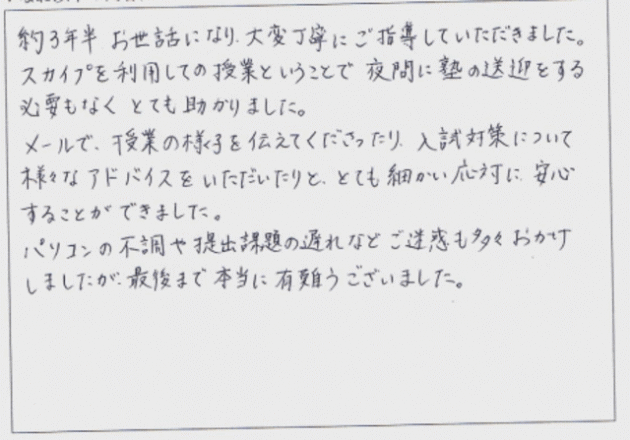 約3年半 お世話になり、大変丁寧にご指導していただきました。
スカイプを利用しての授業ということで 夜間に塾の送迎をする
必要もなく とても助かりました。
メールで、授業の様子を伝えてくださったり、入試対策について
様々なアドバイスをいただいたりと、とても細かい応対に、安心
することができました。
パソコンの不調や提出課題の遅れなど ご迷惑も多々おかけ
しましたが、最後まで本当に有難うございました。